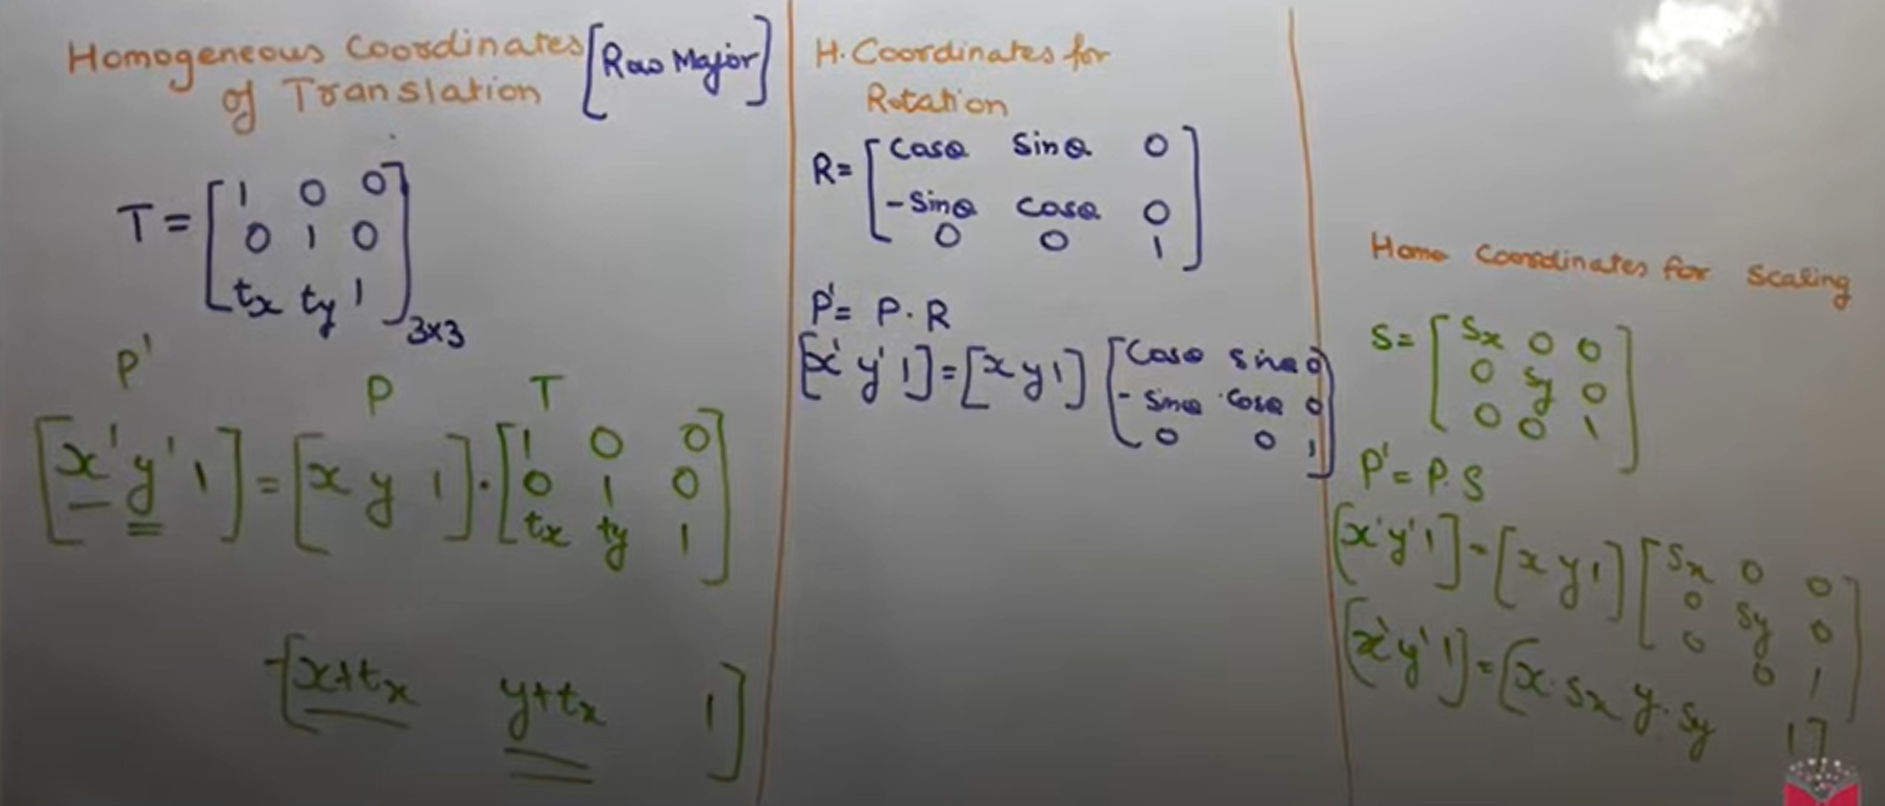 Homogeneous Coordinates
of Translation
[Row Major]
T = [1 0 0
0 1 0
tx ty 1] 3x3
P' P T
[x' y' 1] = [x y 1] . [1 0 0
0 1 0
tx ty 1]
[x+tx y+tx 1]
H. Coordinates for
Rotation
R = [Cosθ Sinθ 0
-Sinθ Cosθ 0
0 0 1]
P' = P . R
[x' y' 1] = [x y 1] [Cosθ Sinθ 0
-Sinθ Cosθ 0
0 0 1]
Homo Coordinates for Scaling
S = [Sx 0 0
0 Sy 0
0 0 1]
P' = P . S
[x' y' 1] = [x y 1] [Sx 0 0
0 Sy 0
0 0 1]
[x' y' 1] = [x . Sx y . Sy 1]